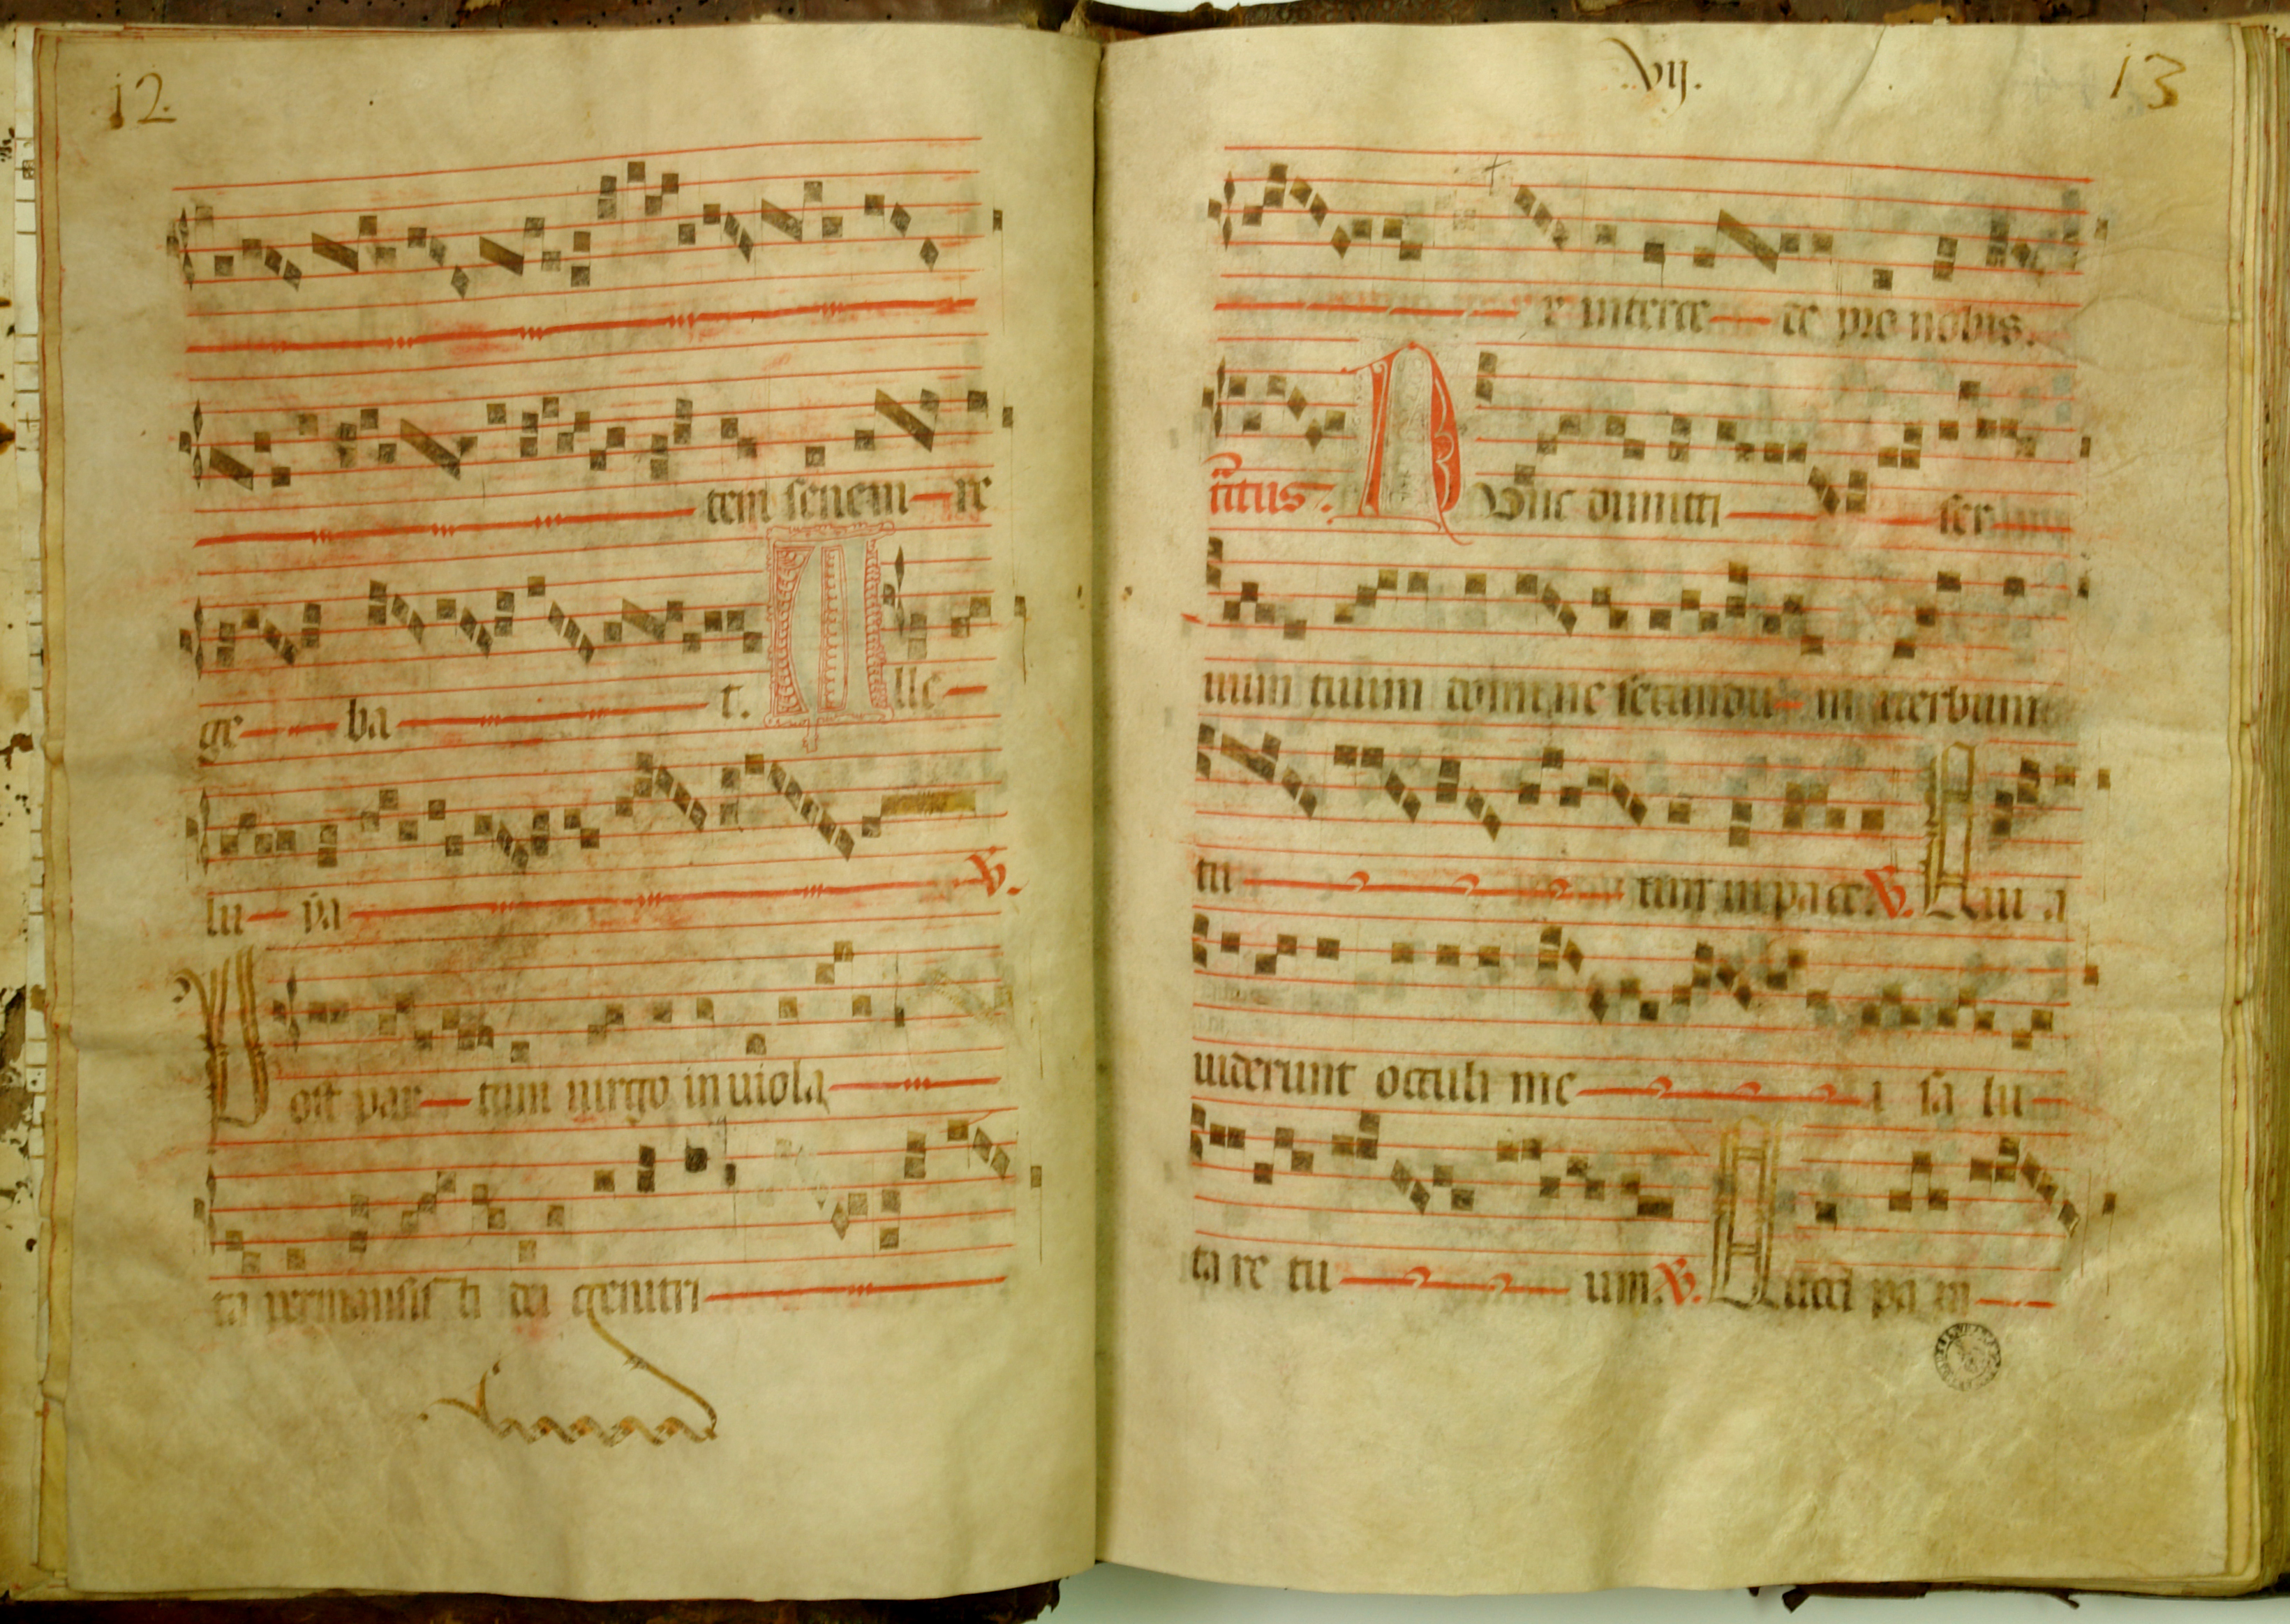 12
tem senem re
ge ba t. Alle
lu ya V.
Post par tum uirgo inuiola
ta permansis ti dei genitri
Vij. 13
x interce de pro nobis.
tractus. Nunc dimitti ser uum
num tuum domine secundu m uerbum
tu um in pace. V. Qui a
uiderunt occuli me i sa lu
ta re tu um. V. Quod pa ra